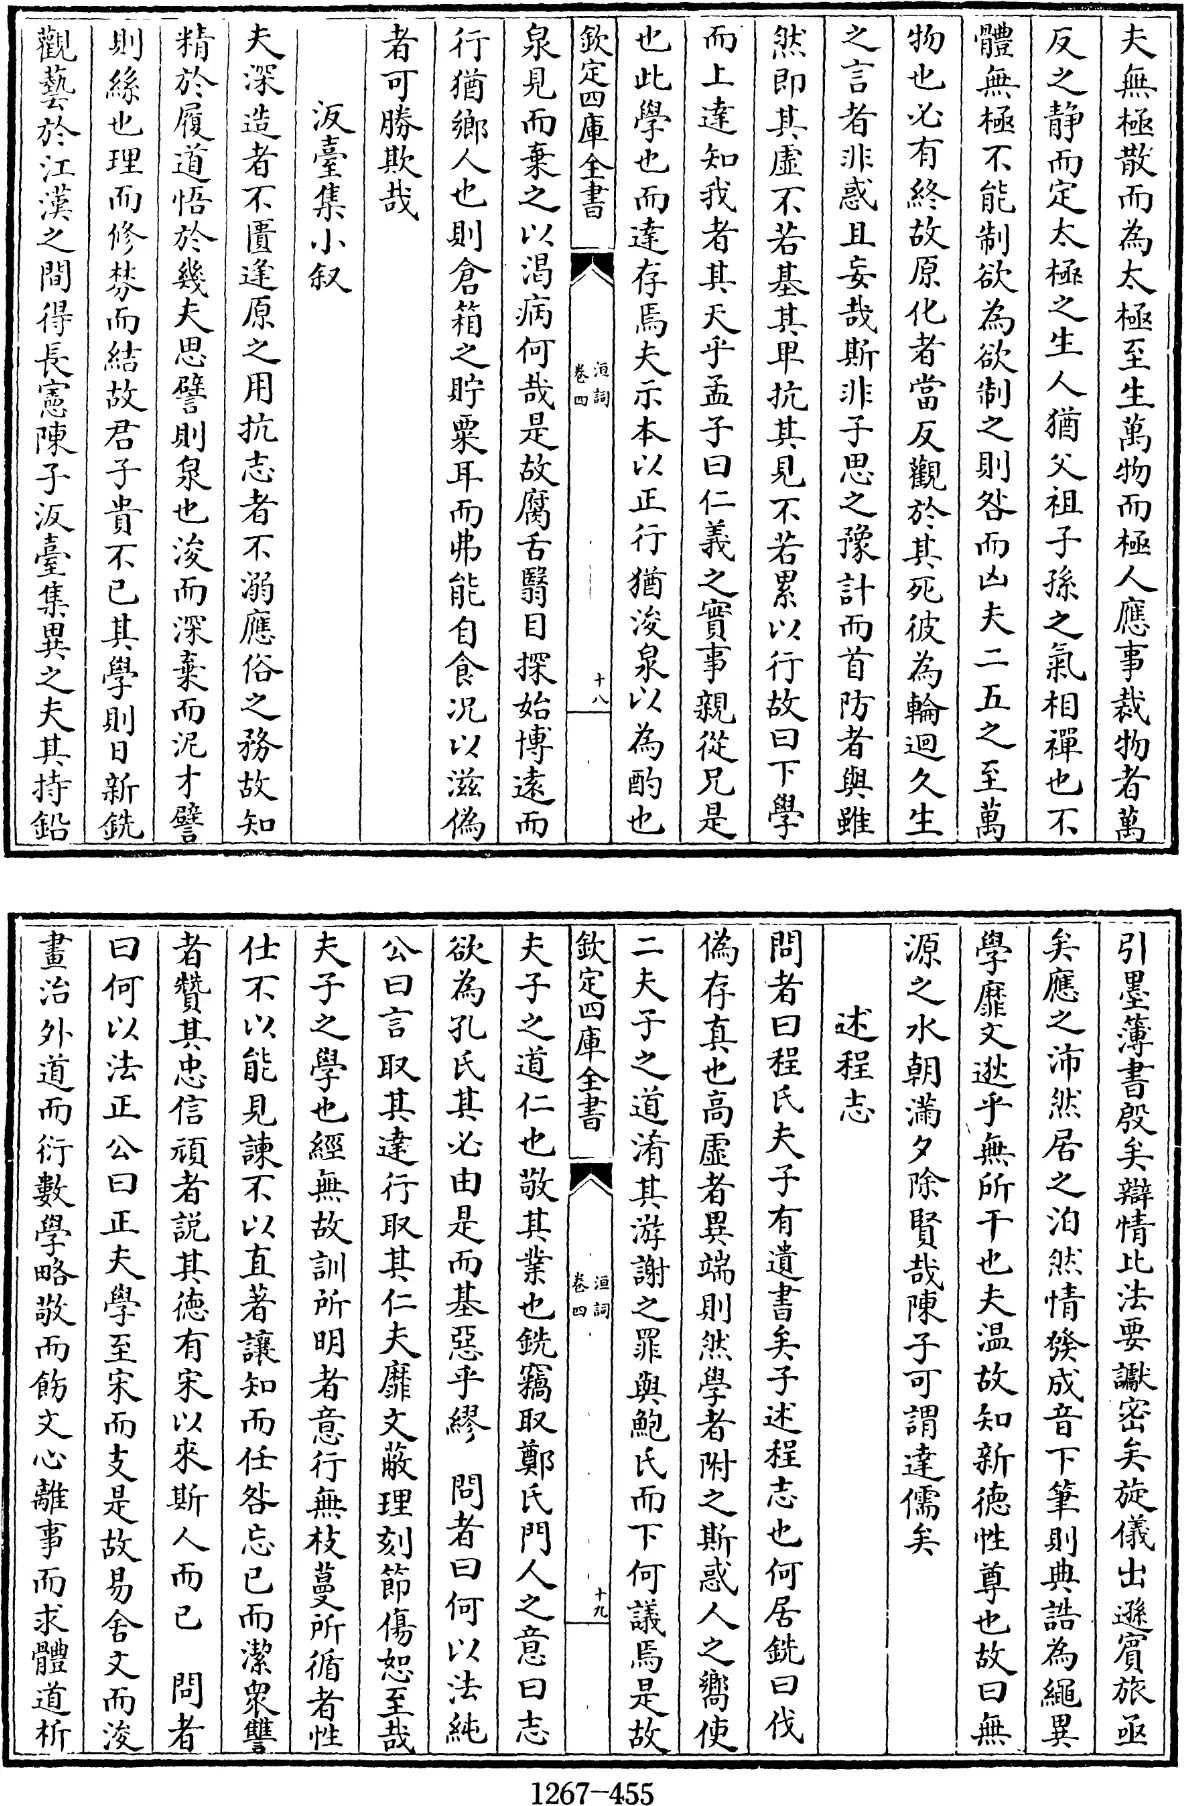 夫無極散而為太極至生萬物而極人應事裁物者萬
反之静而定太極之生人猶父祖子孫之氣相禪也不
體無極不能制欲為欲制之則咎而凶夫二五之至萬
物也必有終故原化者當反觀於其死彼為輪迴久生
之言者非惑且妄哉斯非子思之豫計而首防者與雖
然即其虛不若基其卑抗其見不若累以行故曰下學
而上達知我者其天乎孟子曰仁義之實事親從兄是
也此學也而達存焉夫示本以正行猶浚泉以為酌也
欽定四庫全書
洹詞
卷四
十八
泉見而棄之以渴病何哉是故腐舌翳目探始博遠而
行猶鄉人也則倉箱之貯粟耳而弗能自食况以滋偽
者可勝欺哉
汳臺集小叙
夫深造者不匱逢原之用抗志者不溺應俗之務故知
精於履道悟於幾夫思譬則泉也浚而深棄而泥才譬
則絲也理而修棼而結故君子貴不已其學則日新銑
觀藝於江漢之間得長憲陳子汳臺集異之夫其持鉛
引墨薄書殷矣辯情比法要讞密矣旋儀出遜賓旅亟
矣應之沛然居之泊然情發成音下筆則典誥為繩異
學靡文逖乎無所干也夫温故知新徳性尊也故曰無
源之水朝滿夕除賢哉陳子可謂達儒矣
述程志
問者曰程氏夫子有遺書矣子述程志也何居銑曰伐
偽存真也高虛者異端則然學者附之斯惑人之嚮使
二夫子之道淆其游謝之罪與鮑氏而下何議焉是故
欽定四庫全書
洹詞
卷四
十九
夫子之道仁也敬其業也銑竊取鄭氏門人之意曰志
欲為孔氏其必由是而基惡乎繆 問者曰何以法純
公曰言取其達行取其仁夫靡文蔽理刻節傷恕至哉
夫子之學也經無故訓所明者意行無枝蔓所循者性
仕不以能見諫不以直著讓知而任咎忘已而潔衆讐
者贊其忠信頑者説其徳有宋以來斯人而已 問者
曰何以法正公曰正夫學至宋而支是故易舍文而浚
畫治外道而衍數學略敬而飭文心離事而求體道析
1267-455